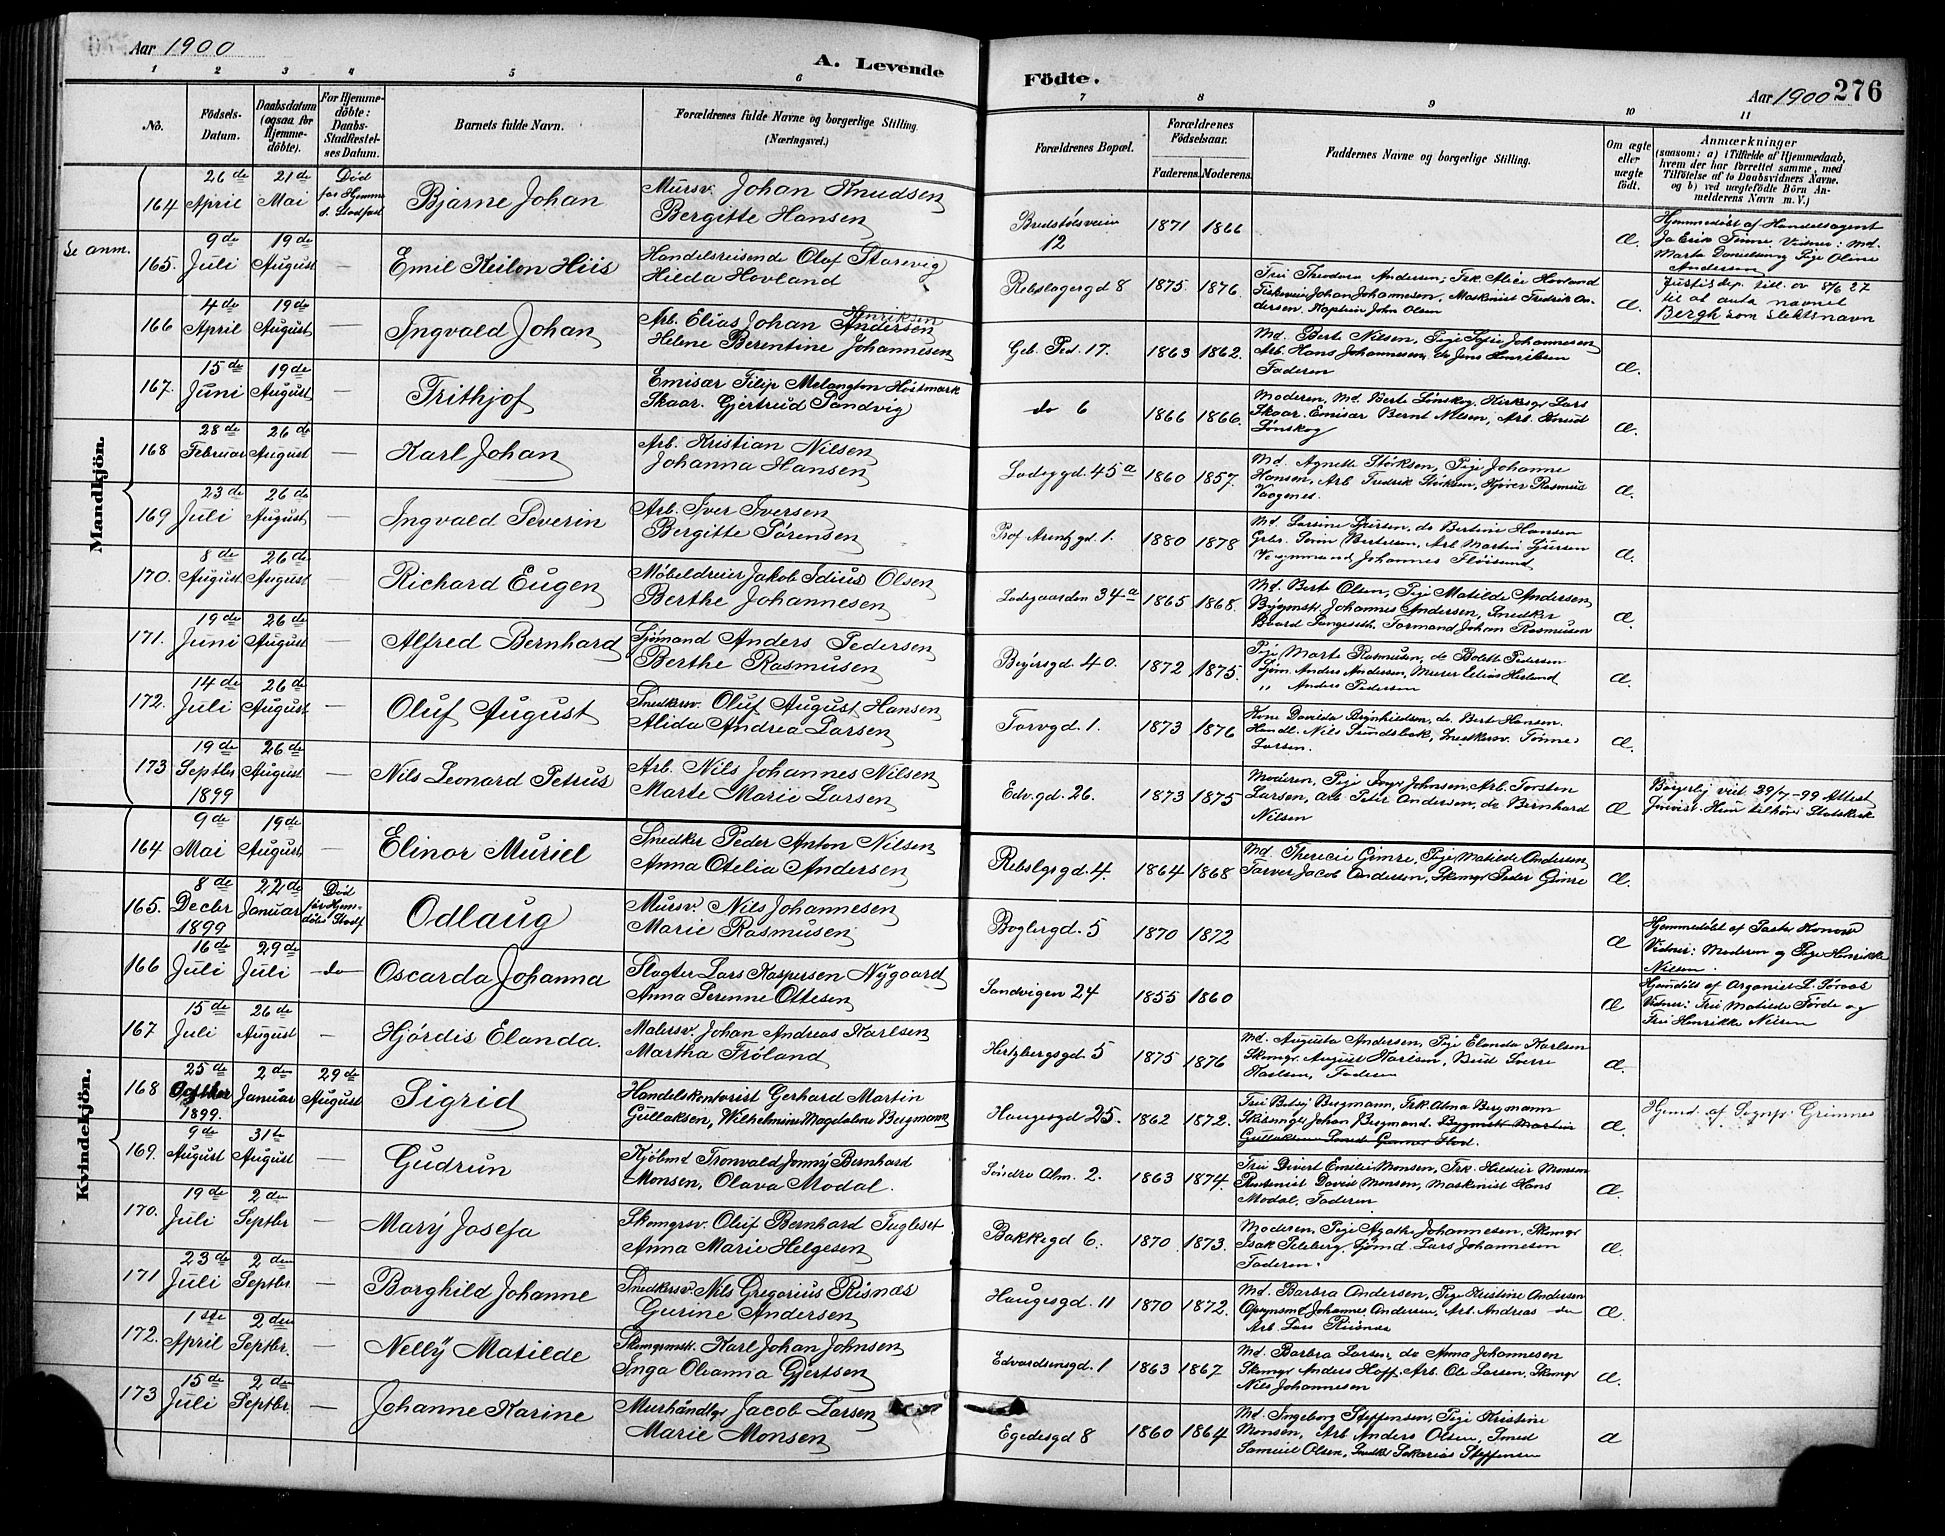 Aar 1900
A. Levende
Födte.
Aar 1900
276
1 2 3 4 5 6 7 8 9 10 11
No.
Födsels-
Datum.
Daabsdatum
(ogsaa for
Hjemme-
döbte).
For Hjemme-
döbte:
Daabs-
Stadfæstel-
ses Datum.
Barnets fulde Navn.
Forældrenes fulde Navne og borgerlige Stilling.
(Næringsvei.)
Forældrenes Bopæl.
Forældrenes
Födselsaar.
Faderens. Moderens.
Faddernes Navne og borgerlige Stilling.
Om ægte
eller
uægte
födt.
Anmærkninger
(saasom: a) i Tilfælde af Hjemmedaab,
hvem der har forrettet samme, med
Tilföielse af to Daabsvidners Navne,
og b) ved uægtefödte Börn An-
melderens Navn m. V.)
Mandkjön.
164 26de April 21de Mai Død før Hjemme d. Stadfæst
Bjarne Johan
Mursv. Johan Knudsen
Bergitte Hansen
12
1871 1866
Æ.
Hjemmedøbt af Handelsagent
Marta Danielsen, Pige Oline
Andersen
Se anm.
165. 9de Juli 19de August —
Emil Keilon Hiis
Handelsreisende Olaf Storevig
Hilda Hovland
Rebslagergd 8
1875. 1876.
Fru Theodora Andersen, Frk. Alice Hovland
Johan Johannesen, Maskinist Fredrik An-
dersen. Kaptein John Olsen
Æ.
Justisdep. till. av 8/6 27
til at anta navnet
Bergh som slektsnavn
166 4de April 19de August —
Ingvald Johan
Henriksen
Arb. Elias Johan Andersen
Helene Berentine Johannesen
Geb. Ped. 17.
1863 1862.
Md. Berte Nilsen, Pige Sofie Johannesen
Arb. Hans Johannesen, do Jens Henriksen
Faderen
Æ.
167. 15de Juni 19de August —
Frithjof
Emisær Filip Melangton Høstmark
Skaar. Gjertrud Sandvig
do 6
1866 1866.
Moderen, Md. Berte Lønskog, Kirksgr Lars
Skaar. Emisær Bernt Nilsen, Arb. Knud
Lønskog
Æ.
168 28de Februar 26de August —
Karl Johan
Arb. Kristian Nilsen
Johanna Hansen
Ladeggd 45a
1860 1857.
Md. Agnette Størksen, Pige Johanne
Hansen, Arb Fredrik Størksen, Kjører Rasmus
Vaagenes.
Æ.
169 23de Juli 26de August —
Ingvald Severin
Arb. Iver Iversen
Bergitte Sørensen
Prof Arentzgd 1.
1880 1878
Md. Larsine Iversen, do Bertine Hansen
Grbr. Sørin Bertelsen, Arb Martin Iversen
Vognmand Johannes Fløisand
Æ.
170. 8de August 26de August —
Richard Eugen
Møbeldreier Jakob Idius Olsen
Berthe Johannesen
Ladegaarden 34a
1865 1868.
Md. Berte Olsen, Pige Matilde Andersen
Bygmstr. Johannes Andersen, Snedker
Baard Langesæth. Formand Johan Rasmusen
Æ.
171. 19de Juni 26de August —
Alfred Bernhard
Sjømand Anders Pedersen
Berthe Rasmusen
Beyersgd. 40.
1872 1875.
Pige Marte Rasmusen, do Bolette Pedersen
Sjøm. Anders Andersen, Murer Elias Hesland
„ Anders Pedersen
Æ.
172. 14de Juli 26de August —
Oluf August
Snedkersv. Oluf August Hansen
Alida Andrea Larsen
Torvgd. 1.
1873 1876
Kone Davilda Brynhildsen, do. Berte Hansen.
Handl. Nils Sundsbak, Snedkersv. Tønnes
Larsen.
Æ.
173 19de Septbr 1899 26de August —
Nils Leonard Petrus
Arb. Nils Johannes Nilsen
Marte Marie Larsen
Edv.gd. 26.
1873 1875
Moderen, Pige Inga Johnsen, Arb. Torsten
Larsen, Arb Peter Andersen, do Bernhard
Nilsen
Æ
Borgerlig viet 29/7-99 Attest
forevist. Hun tilhører Statskirk
Kvindekjön.
164 9de Mai 19de August —
Elinor Muriel
Snedker Peder Anton Nilsen
Anna Otelia Andersen
Rebslgsgd. 4.
1864 1868
Md. Therecie Gimre, Pige Matilde Andersen
Farver Jacob Andersen, Skomgr Peder Gimre
Æ.
165. 8de Decbr 1899 22de Januar Død før Hjem- døbs Stadf
Odlaug
Mursv. Nils Johannesen
Marie Rasmusen
Boglergd. 5
1870 1872
Æ
Hjemmedøbt af Pastor Konow
Vidner: Moderen og Pige Henrikke
Nilsen.
166 16de Juli 29de Juli -do-
Oscarda Johanna
Slagter Lars Kaspersen Nygaard
Anna Serenne Ottesen
Sandvigen 24
1855 1860
Æ
Hjemdøbt af Organist L. Søraas
Vidner: Fru Matilde Førde og
Fru Henrikke Nilsen
167 15de Juli 26de August —
Hjørdis Elanda.
Malersv. Johan Andreas Karlsen
Martha Frøland
Hertzbergsgd. 5
1875 1876
Md. Augusta Andersen, Pige Elanda Karlsen
Skomgr. August Karlsen, Bud Sverre
Karlsen, Faderen
Æ.
168 25de 1899. 2den Januar 29de August
Sigrid
Handelskontorist Gerhard Martin
Gullaksen, Wilhelmine Magdalene Bergmann
Haugesgd 25.
1862 1872.
Fru Betsy Bergmann, Frk. Alma Bergmann
Johan Bergmand. Bygmstr Martin
Gullaksen
Æ.
Hjemd. af Sognep. Grimnes
169. 9de August 31te August —
Gudrun
Kjøbmd Tronvald Jonny Bernhard
Monsen, Olava Modal.
Søndre Alm. 2.
1863 1874.
Fru Divert Emilie Monsen, Frk. Hildur Monsen
David Monsen, Maskinist Hans
Modal, Faderen
Æ.
170. 19de Juli 2den Septbr —
Mary Josefa
Skomgrsv. Oluf Bernhard Fugleset
Anna Marie Helgesen
Bakkegd 6.
1870. 1873.
Moderen, Pige Agathe Johannesen, Skomgr
Isak Seleberg, Sjømd. Lars Johannesen
Faderen.
Æ.
171 23de Juli 2den Septbr. —
Borghild Johanne
Snedkersv. Nils Gregorius Risnæs
Gurine Andersen
Haugesgd. 11
1870 1872.
Md. Barbra Andersen, Pige Kristine Andersen
Opsynsmd Johannes Andersen, Arb. Andreas do
Arb. Lars Risnæs
Æ.
172. 1ste April 2den Septbr. —
Nelly Matilde
Skomgrmstr. Karl Johan Johnsen
Inga Oleanna Gjertsen
Edvardsensgd. 1
1863 1867
Md. Barbra Larsen, do Anna Johannesen
Skomgr Anders Hoff, Arb. Ole Larsen, Skomgr
Nils Johannesen
Æ.
173 15de Juli 2de Septbr. —
Johanne Karine
Murhåndlgr Jacob Larsen
Marie Monsen
Egedesgd 8
1860 1864
Md. Ingeborg Steffensen, Pige Kristine
Monsen, Arb Anders Olsen, Smed
Samuel Olsen, Snedk Sakarias Steffensen
Æ